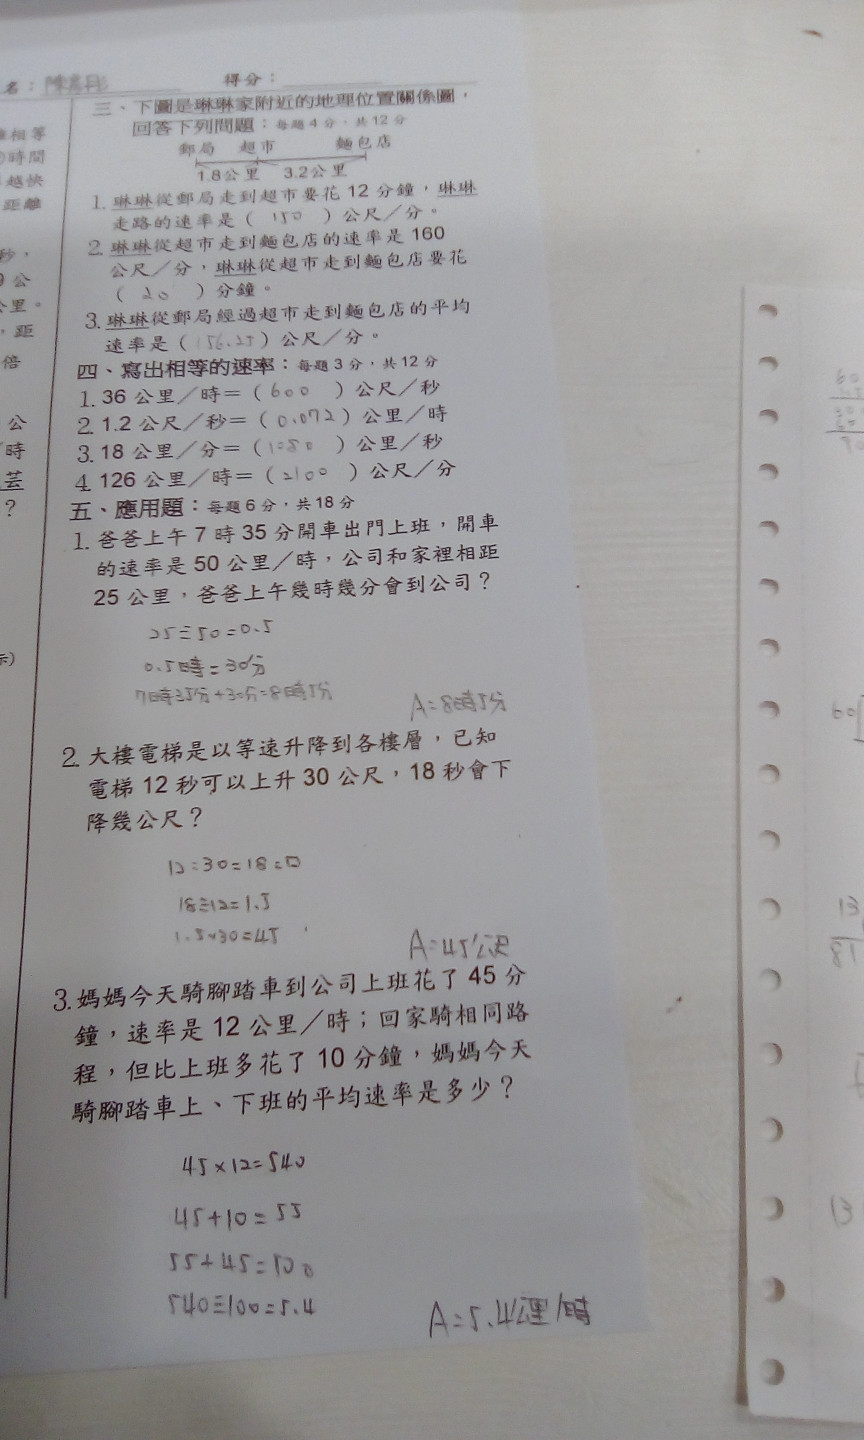 名：陳
得分：
三、下圖是琳琳家附近的地理位置關係圖，
回答下列問題：每題4分，共12分
郵局 超市 麵包店
1.8公里 3.2公里
1. 琳琳從郵局走到超市要花 12 分鐘，琳琳
走路的速率是（ 150 ）公尺／分。
2. 琳琳從超市走到麵包店的速率是 160
公尺／分，琳琳從超市走到麵包店要花
（ 20 ）分鐘。
3. 琳琳從郵局經過超市走到麵包店的平均
速率是（156.25）公尺／分。
四、寫出相等的速率：每題 3 分，共 12 分
1. 36 公里／時＝（600 ）公尺／秒
2. 1.2 公尺／秒＝（0.072）公里／時
3. 18 公里／分＝（1080 ）公里／秒
4. 126 公里／時＝（2100 ）公尺／分
五、應用題：每題 6 分，共 18 分
1. 爸爸上午 7 時 35 分開車出門上班，開車
的速率是 50 公里／時，公司和家裡相距
25 公里，爸爸上午幾時幾分會到公司？
25÷50=0.5
0.5時=30分
7時35分+30分=8時5分
A=8時5分
2. 大樓電梯是以等速升降到各樓層，已知
電梯 12 秒可以上升 30 公尺，18 秒會下
降幾公尺？
12:30=18:口
18÷12=1.5
1.5×30=45
A=45公尺
3. 媽媽今天騎腳踏車到公司上班花了 45 分
鐘，速率是 12 公里／時；回家騎相同路
程，但比上班多花了 10 分鐘，媽媽今天
騎腳踏車上、下班的平均速率是多少？
45×12=540
45+10=55
55+45=100
540÷100=5.4
A=5.4公里/時
相等
時間
越快
距離
秒，
9 公
公里。
，距
倍
公
時
芸
？
示)
60
13
81
13